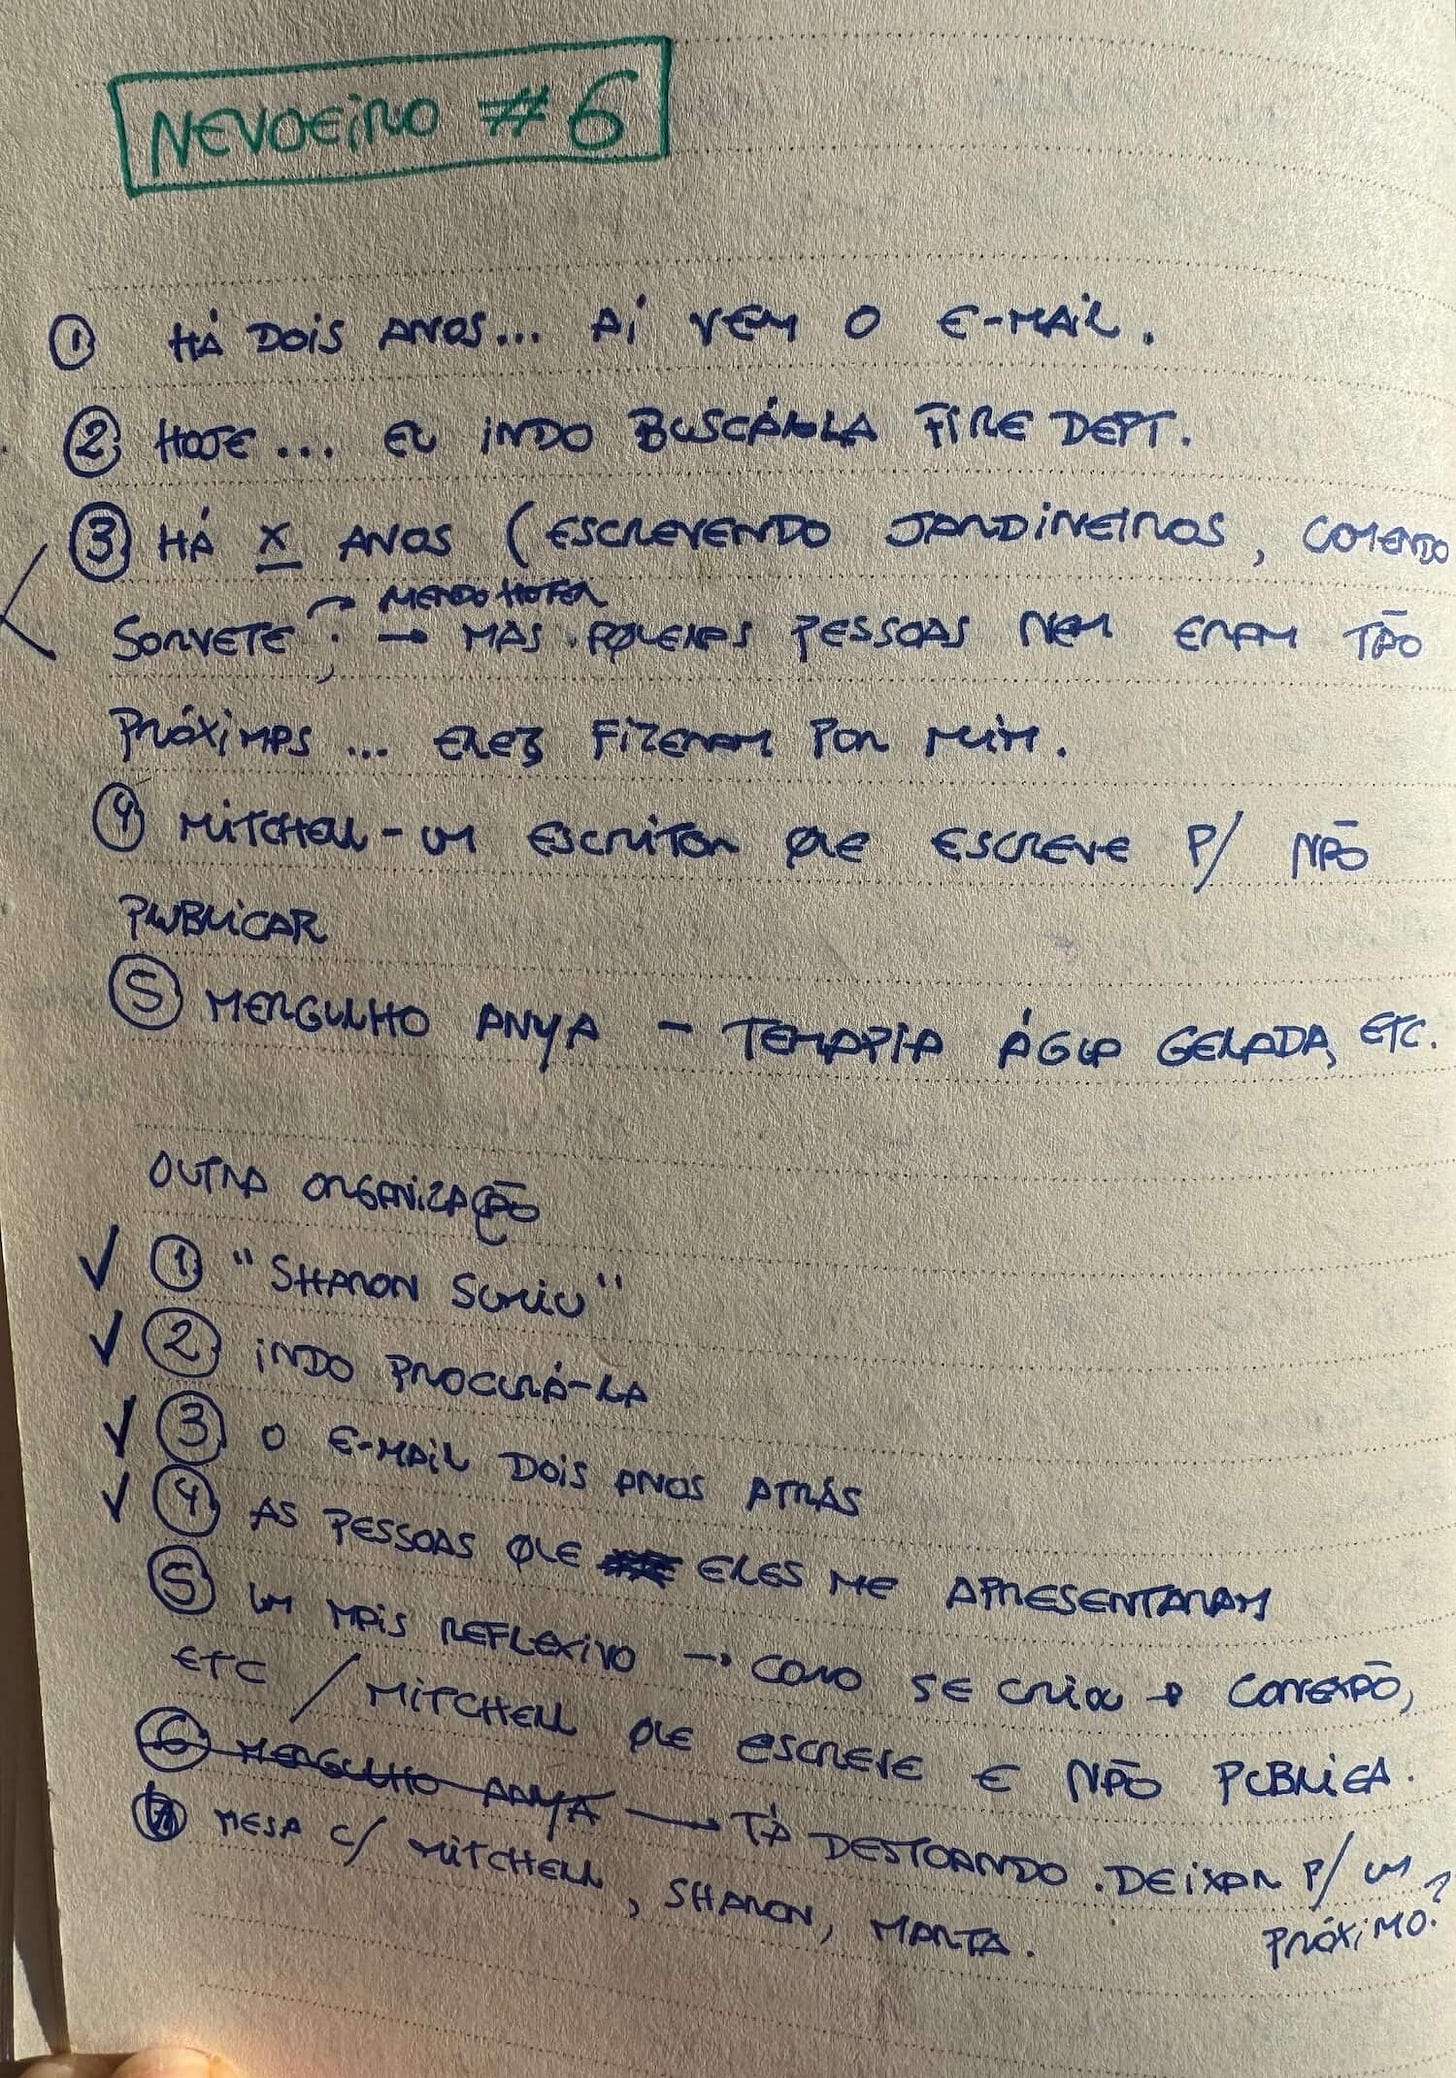 NEVOEIRO #6
① HÁ DOIS ANOS... AÍ VEM O E-MAIL.
② HOJE... EU INDO BUSCÁ-LA FIRE DEPT.
③ HÁ X ANOS (ESCREVENDO JARDINEIROS, COMENDO
MENDO HOTEL
SORVETE; → MAS AQUELAS PESSOAS NEM ERAM TÃO
PRÓXIMAS ... ELES FIZERAM POR MIM.
④ MITCHELL - UM ESCRITOR QUE ESCREVE P/ NÃO
PUBLICAR
⑤ MERGULHO ANYA - TERAPIA ÁGUA GELADA, ETC.
OUTRA ORGANIZAÇÃO
✓ ① "SHARON SUMIU"
✓ ② INDO PROCURÁ-LA
✓ ③ O E-MAIL DOIS ANOS ATRÁS
✓ ④ AS PESSOAS QUE ELES ME APRESENTARAM
⑤ UM MAIS REFLEXIVO → COMO SE CRIA CONEXÃO,
ETC / MITCHELL QUE ESCREVE E NÃO PUBLICA.
⑥ MERGULHO ANYA → TÁ DESTOANDO. DEIXAR P/ UM
PRÓXIMO?
MESA C/ MITCHELL, SHARON, MARTA.